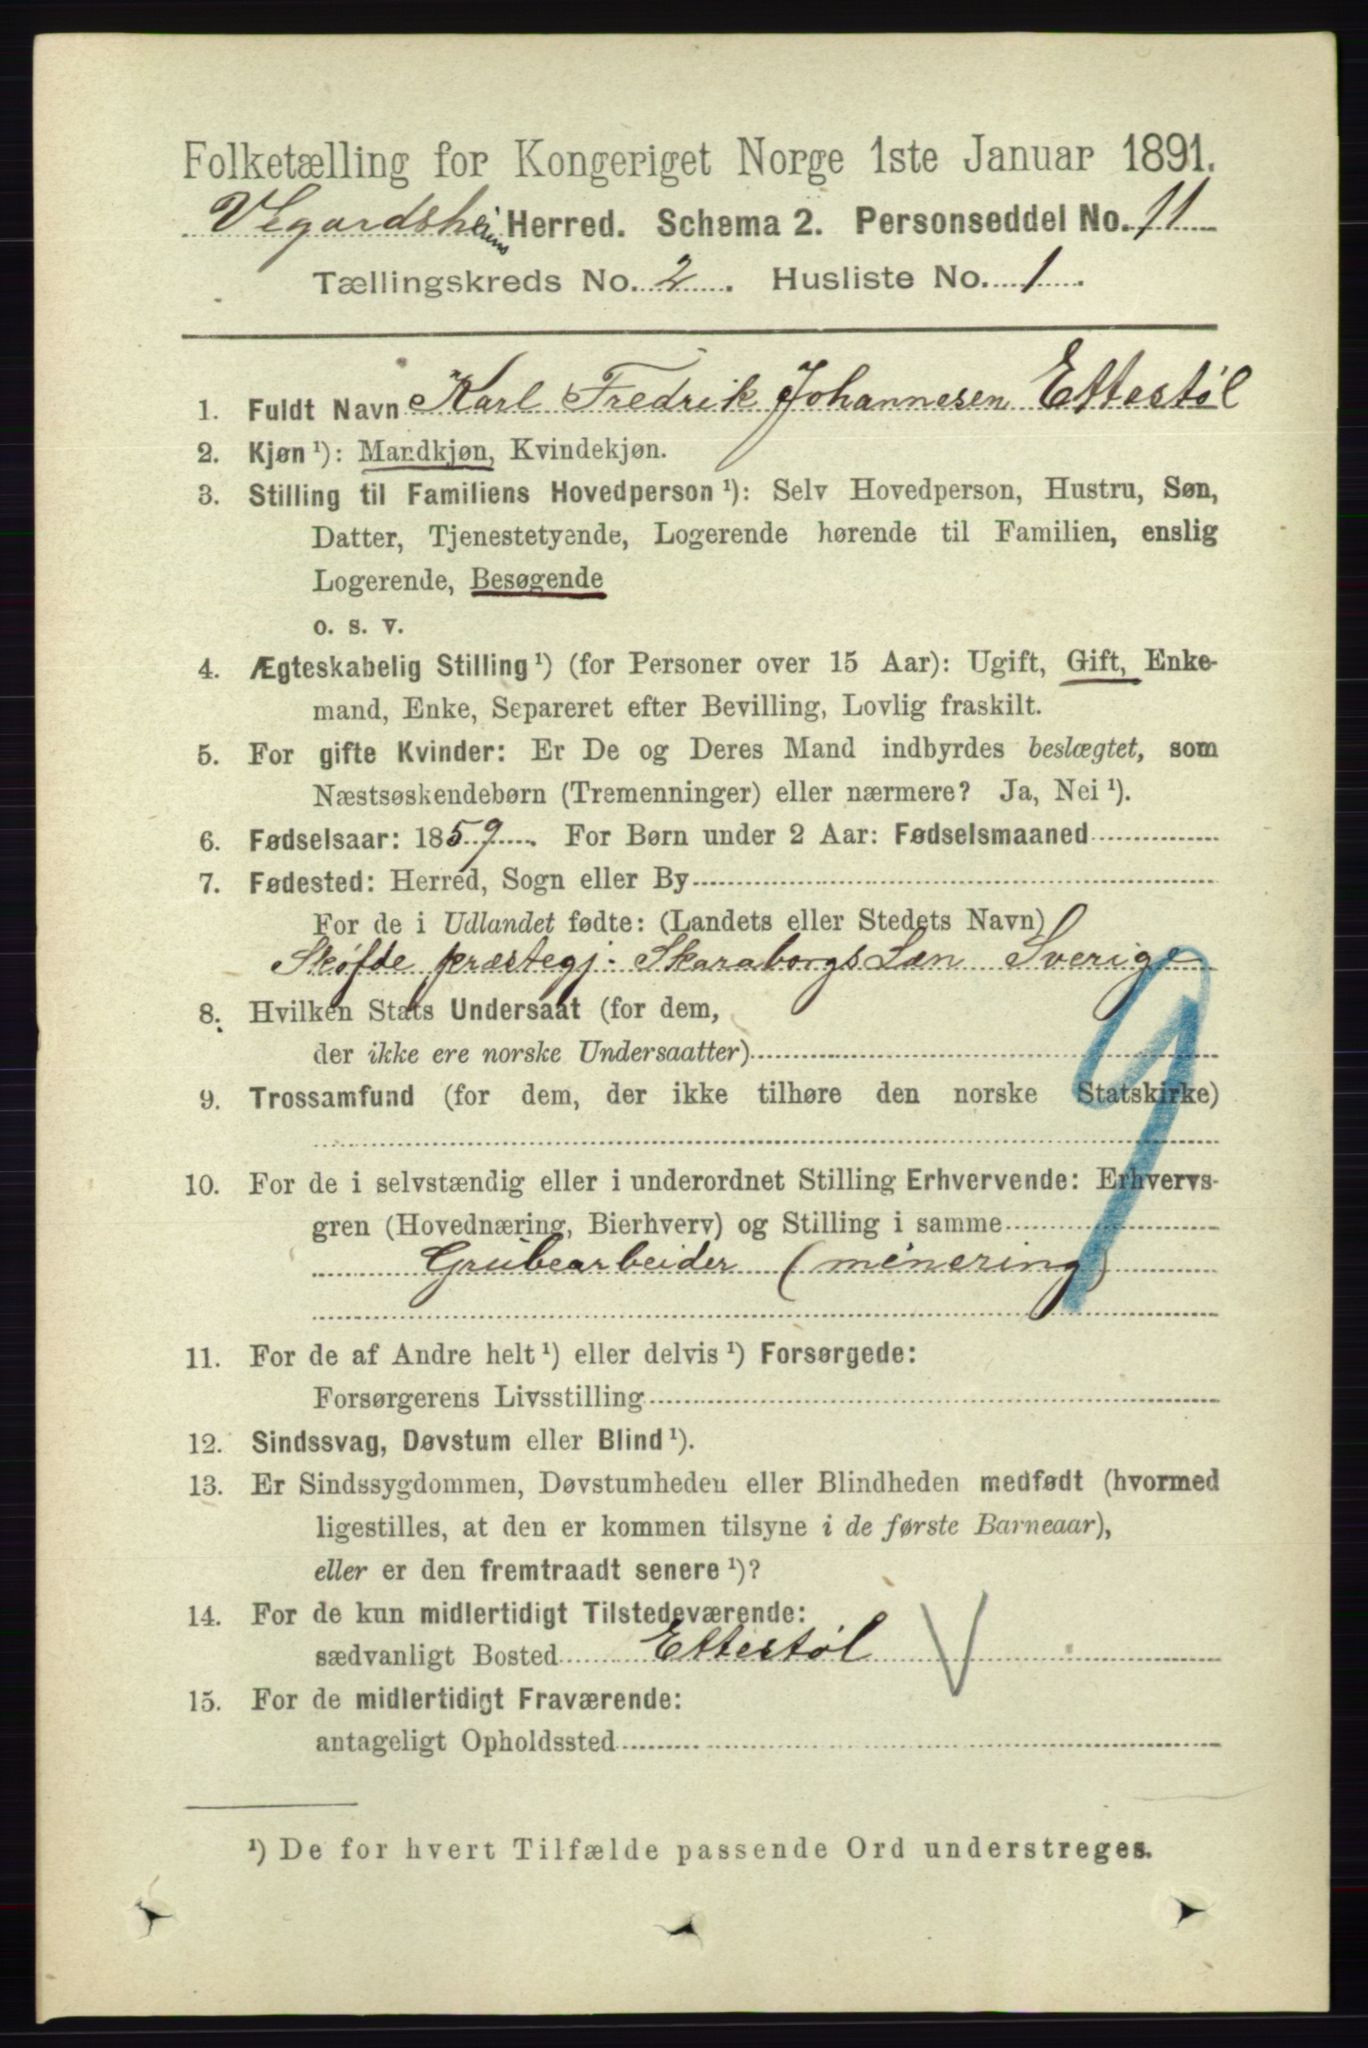 Folketælling for Kongeriget Norge 1ste Januar 1891.
Vegardsheims Herred. Schema 2. Personseddel No. 11
Tællingskreds No. 2. Husliste No. 1.
1. Fuldt Navn Karl Fredrik Johannesen Ettestøl
2. Kjøn ¹): Mandkjøn, Kvindekjøn.
3. Stilling til Familiens Hovedperson ¹): Selv Hovedperson, Hustru, Søn,
Datter, Tjenestetyende, Logerende hørende til Familien, enslig
Logerende, Besøgende
o. s. v.
4. Ægteskabelig Stilling ¹) (for Personer over 15 Aar): Ugift, Gift, Enke-
mand, Enke, Separeret efter Bevilling, Lovlig fraskilt.
5. For gifte Kvinder: Er De og Deres Mand indbyrdes beslægtet, som
Næstsøskendebørn (Tremenninger) eller nærmere? Ja, Nei ¹).
6. Fødselsaar: 1859. For Børn under 2 Aar: Fødselsmaaned
7. Fødested: Herred, Sogn eller By
For de i Udlandet fødte: (Landets eller Stedets Navn)
Skøfde præstegj. Skaraborgs Læn Sverige
8. Hvilken Stats Undersaat (for dem,
der ikke ere norske Undersaatter)
9. Trossamfund (for dem, der ikke tilhøre den norske Statskirke)
9
10. For de i selvstændig eller i underordnet Stilling Erhvervende: Erhvervs-
gren (Hovednæring, Bierhverv) og Stilling i samme
Grubearbeider (minering)
11. For de af Andre helt ¹) eller delvis ¹) Forsørgede:
Forsørgerens Livsstilling
12. Sindssvag, Døvstum eller Blind ¹).
13. Er Sindssygdommen, Døvstumheden eller Blindheden medfødt (hvormed
ligestilles, at den er kommen tilsyne i de første Barneaar),
eller er den fremtraadt senere ¹)?
14. For de kun midlertidigt Tilstedeværende:
sædvanligt Bosted Ettestøl V
15. For de midlertidigt Fraværende:
antageligt Opholdssted
¹) De for hvert Tilfælde passende Ord understreges.